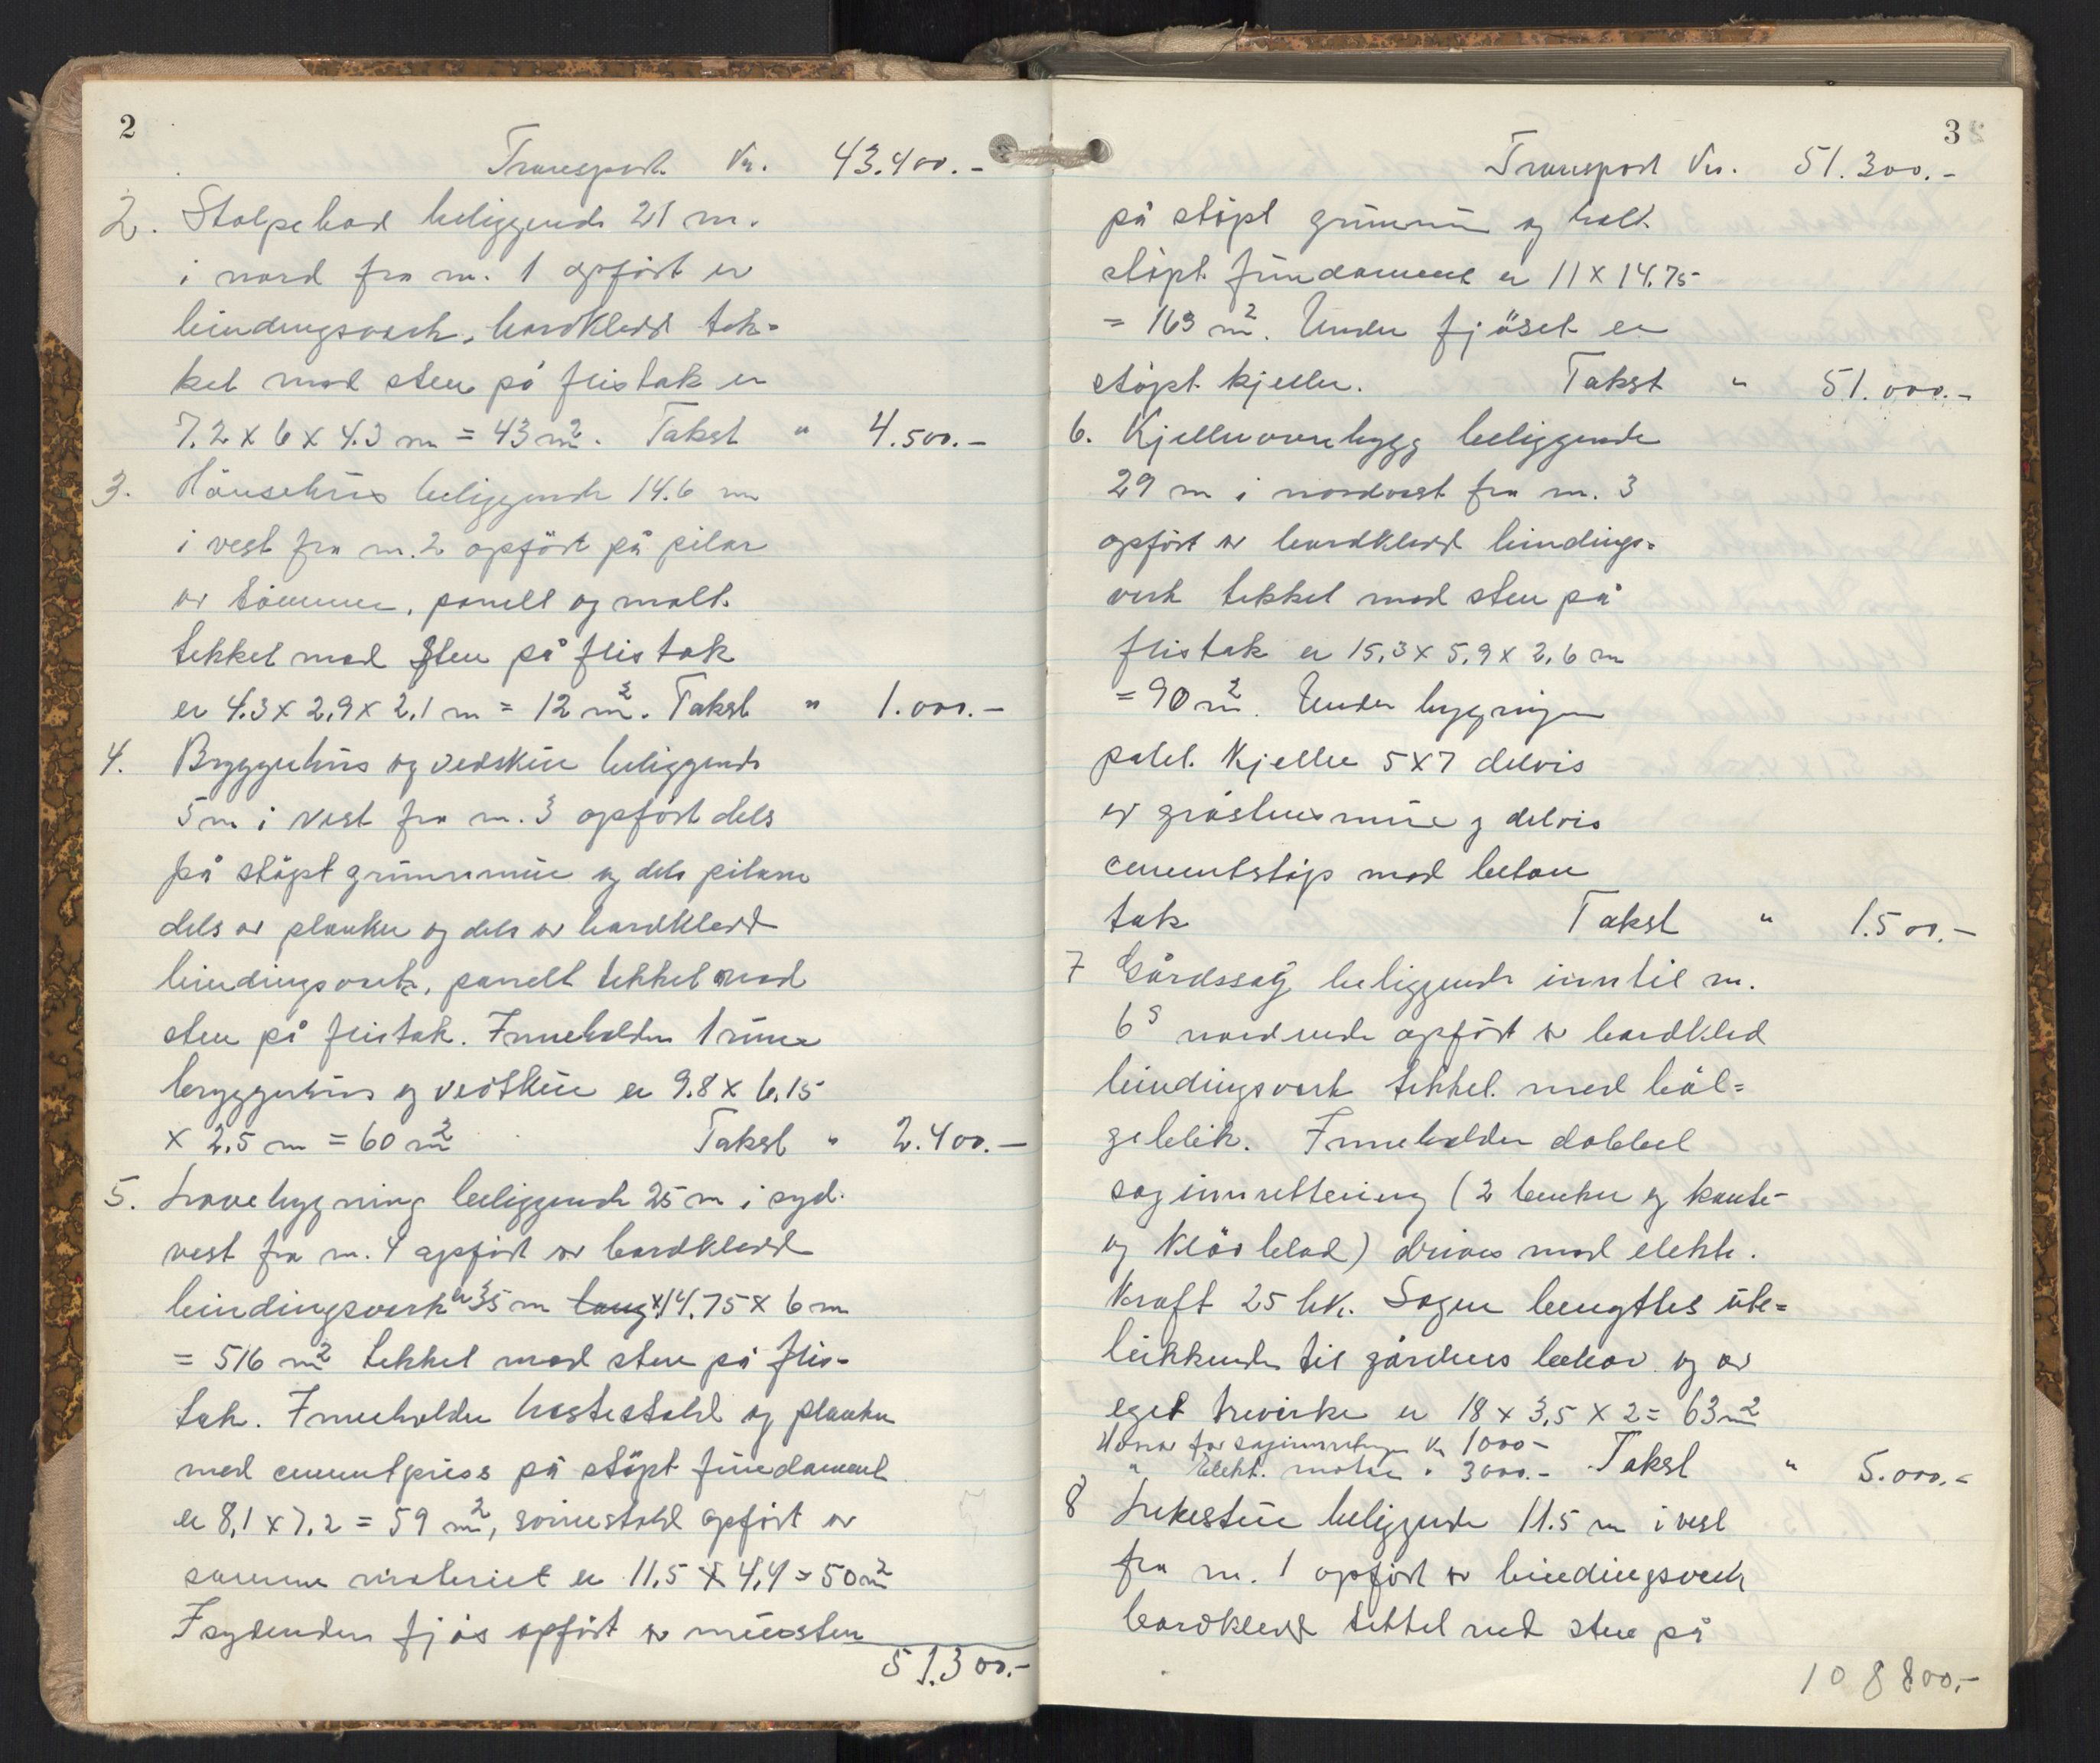 2
Transport Kr. 43.400.-
2. Stolpebod beliggende 21 m.
i nord fra nr. 1 opført av
bindingsverk, bordkledd tek-
ket med sten på flistak er
7.2 x 6 x 4.3 m = 43 m². Takst " 4.500.-
3. Hönsehus beliggende 14.6 m
i vest fra nr. 2 opfört på pilar
av tömmer, panelt og malt.
tekket med sten på flistak
er 4.3 x 2,9 x 2,1 m = 12 m². Takst " 1.000.-
4. Bryggerhus og vedskur beliggende
5 m i vest fra nr. 3 opført dels
på støpt grunnmur og dels pilarer
dels av planker og dels av bordkledd
bindingsverk, panelt tekket med
sten på flistak. Inneholder 1 rum
bryggerhus og vedskur er 9.8 x 6,15
x 2,5 m = 60 m² Takst " 2.400.-
5. Lavebygning beliggende 25 m i syd-
vest fra nr. 4 opført av bordkledd
bindingsverk er 35 m lang x 14.75 x 6 m
= 516 m² tekket med sten på flis-
tak. Inneholder hestestald og planker
med cementpuss på støpt fundament
er 8,1 x 7,2 = 59 m², svinestald opført av
samme materiet er 11,5 x 4,4 = 50 m²
I sydenden fjøs opført av mursten
51.300.-
3
Transport Kr. 51.300.-
på støpt grunnmur og helt
støpt fundament er 11 x 14.75
= 163 m². Under fjöset er
støpt kjeller. Takst " 51.000.-
6. Kjelleroverbygg beliggende
29 m i nordvest fra nr. 3
opført av bordkledd bindings-
verk tekket med sten på
flistak er 15,3 x 5,9 x 2,6 m
= 90 m². Under bygningen
potet kjeller 5 x 7 delvis
av gråstensmur og delvis
cementstøp med beton
tak Takst " 1.500.-
7 Gårdssag beliggende inntil nr.
6s nordende opført av bordkled
bindingsverk tekket med böl-
geblik. Inneholder dobbel
saginnrettening (2 benker og kante-
og kløvblad) drives med elektr.
kraft 25 hk. Sagen benyttes ute-
lukkende til gårdens behov og av
eget trevirke er 18 x 3,5 x 2 = 63 m²
Herav for saginnretningen kr 1000-
" elektr. motor " 3000.- Takst " 5.000.-
8 Lekestue beliggende 11.5 m i vest
fra nr. 1 opført av bindingsverk
bordkledd tekket med sten på
108800,-